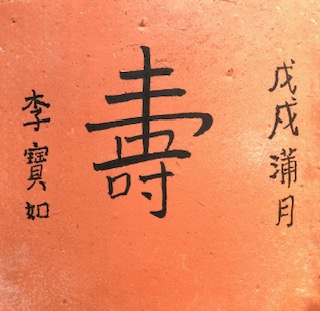 戊戌蒲月
壽
李寶如